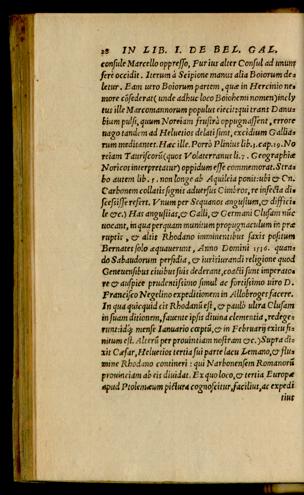 28 IN LIB. I. DE BEL. GAL.
consule Marcello oppresso, Furius alter Consul ad unum
ferè occidit. Iterum à Scipione manus alia Boiorum de
letur. Eam uero Boiorum partem, quæ in Hercinio ne-
more cōsederat (unde adhuc loco Boiohemi nomen) incly
tus ille Marcomannorum populus eiecit: qui trans Danu
bium pulsi, quum Noreiam frustrà oppugnassent, errore
uago tandem ad Heluetios delati sunt, excidium Gallia-
rum meditantes. Hæc ille. Porrò Plinius lib. 3. cap. 19. No
reiam Tauriscorū (quos Volaterranus li. 7. Geographiæ
Noricos interpretatur) oppidum esse commemorat. Stra-
bo autem lib. 5. non longe ab Aquileia ponit: ubi &amp; Cn.
Carbonem collatis signis aduersus Cimbros, re infecta di
scessisse refert. Vnum per Sequanos angustum, &amp; difficí
le &amp;c.) Has angustias, &amp; Galli, &amp; Germani Clusam nūc
uocant, in qua perquam munitum propugnaculum in præ
ruptis, &amp; altis Rhodano imminentibus saxis positum
Bernates solo æquauerunt, Anno Domini 1536. quan-
do Sabaudorum perfidia, &amp; iuriíurandi religione quod
Geneuensibus ciuibus suis dederant, coacti sunt imperato-
re &amp; auspice prudentissimo simul ac fortissimo uiro D.
Francisco Negelino expeditionem in Allobroges facere.
In qua quicquid cis Rhodanū est, &amp; paulò ultra Clusam
in suam ditionem, fauente ipsis diuina clementia, redege-
runt: idq; mense Ianuario cœptū, &amp; in Februarij exitu fi-
nitum est. Alterū per prouintiam nostram &amp;c.) Supra di-
xit Cæsar, Heluetios tertia sui parte lacu Lemano, &amp; flu
mine Rhodano contineri: qui Narbonensem Romanorū
prouinciam ab eis diuidat. Ex quo loco, &amp; tertia Europæ
apud Ptolemæum pictura cognoscitur, facilius, ac expedi
tius